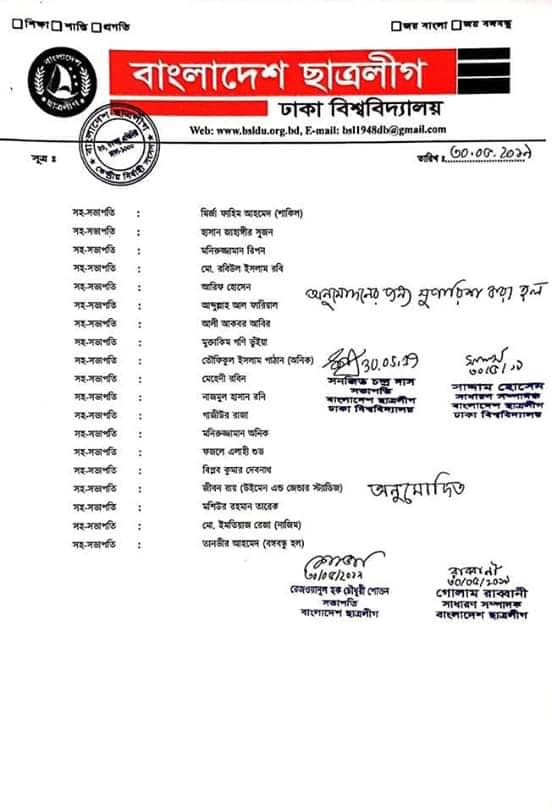 শিক্ষা শান্তি প্রগতি
জয় বাংলা জয় বঙ্গবন্ধু
বাংলাদেশ ছাত্রলীগ
বাংলাদেশ ছাত্রলীগ
ঢাকা বিশ্ববিদ্যালয়
Web: www.bsldu.org.bd, E-mail: bsl1948db@gmail.com
বাংলাদেশ ছাত্রলীগ
কেন্দ্রীয় নির্বাহী সংসদ
সূত্র ঃ
তারিখ ঃ 30.05.২০১৯
সহ-সভাপতি : মির্জা ফাহিম আহমেদ (শাকিল)
সহ-সভাপতি : হাসান জাহাঙ্গীর সুজন
সহ-সভাপতি : মনিরুজ্জামান রিপন
সহ-সভাপতি : মো. রবিউল ইসলাম রবি
সহ-সভাপতি : আরিফ হোসেন
সহ-সভাপতি : আব্দুল্লাহ আল ফারিয়াল
সহ-সভাপতি : আলী আকবর আবির
সহ-সভাপতি : মুক্তাকিম গণি ভুঁইয়া
সহ-সভাপতি : তৌফিকুল ইসলাম পাঠান (অনিক)
সহ-সভাপতি : মেহেদী রবিন
সহ-সভাপতি : নাজমুল হাসান রনি
সহ-সভাপতি : গাজীউর রাজা
সহ-সভাপতি : মনিরুজ্জামান অনিক
সহ-সভাপতি : ফজলে এলাহী শুভ
সহ-সভাপতি : বিপ্লব কুমার দেবনাথ
সহ-সভাপতি : জীবন রায় (উইমেন এন্ড জেন্ডার স্ট্যাডিজ)
সহ-সভাপতি : মশিউর রহমান তারেক
সহ-সভাপতি : মো. ইমতিয়াজ রেজা (নাজিম)
সহ-সভাপতি : তানভীর আহমেদ (বঙ্গবন্ধু হল)
অনুমোদনের জন্য সুপারিশ করা হল
30.05.19
সনজিত চন্দ্র দাস
সভাপতি
বাংলাদেশ ছাত্রলীগ
ঢাকা বিশ্ববিদ্যালয়
সাদ্দাম
৩০/৫/১৯
সাদ্দাম হোসেন
সাধারণ সম্পাদক
বাংলাদেশ ছাত্রলীগ
ঢাকা বিশ্ববিদ্যালয়
অনুমোদিত
৩০/০৫/২০১৯
রেজওয়ানুল হক চৌধুরী শোভন
সভাপতি
বাংলাদেশ ছাত্রলীগ
রাব্বানী
৩০/০৫/২০১৯
গোলাম রাব্বানী
সাধারণ সম্পাদক
বাংলাদেশ ছাত্রলীগ